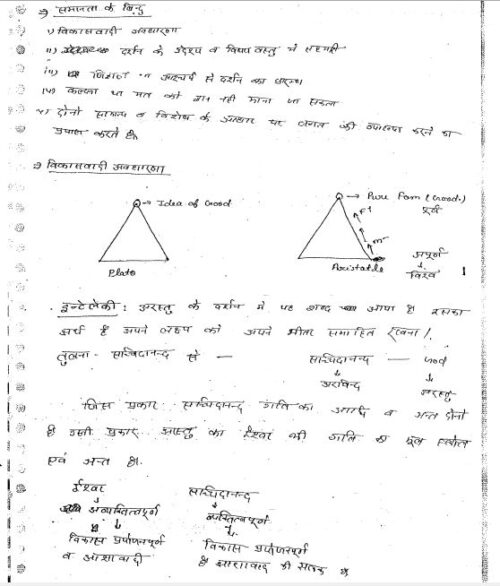 ⇒ समानता के बिन्दु
i) विकासवादी अवधारणा
ii) दर्शन के उद्देश्य व विषय वस्तु में सहमती
iii) जिज्ञासा आश्चर्य से दर्शन का आरम्भ
iv) कल्पना या मत को ज्ञान नही माना जा सकता
v) दोनो सामान्य व विशेष के आधार पर जगत की व्याख्या करने का
प्रयास करते है।
⇒ विकासवादी अवधारणा
→ Idea of Good
Plato
→ Pure Form (Good)
पूर्ण
F↑
m
अपूर्ण
↓
विश्व
Aristotle
इन्टेलेकी : अरस्तु के दर्शन में यह शब्द आया है। इसका
अर्थ है अपने लक्ष्य को अपने भीतर समाहित रखना।
तुलना - सच्चिदानन्द से —
सच्चिदानन्द — God
↓ ↓
अरविन्द अरस्तु
जिस प्रकार सच्चिदानन्द गति का आदि व अन्त दोनो
है उसी प्रकार अरस्तु का ईश्वर भी गति का मूल स्त्रोत
एवं अन्त है।
ईश्वर सच्चिदानन्द
↓ ↓
अव्यक्तित्वपूर्ण व्यक्तित्वपूर्ण
↓ ↓
विकास प्रयोजनपूर्ण विकास प्रयोजनपूर्ण
व आशावादी है आशावाद की